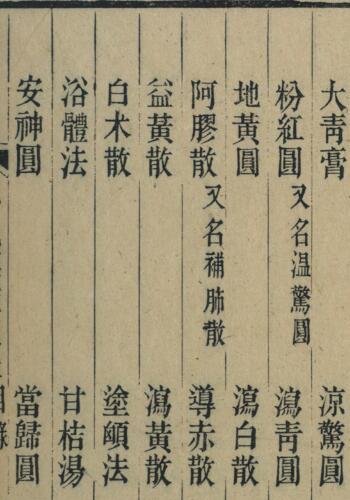 大青膏 涼驚圓
粉紅圓 又名温驚圓 瀉青圓
地黃圓 瀉白散
阿膠散 又名補肺散 導赤散
益黃散 瀉黃散
白木散 塗顖法
浴體法 甘桔湯
安神圓 當歸圓